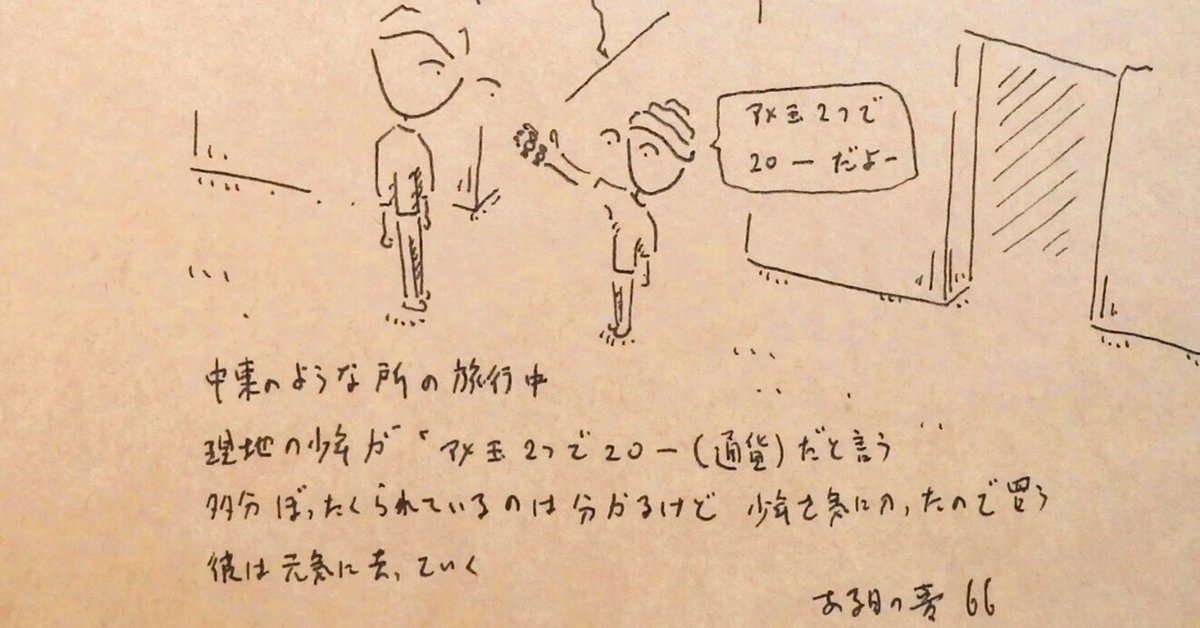 アメ玉2つで
20ーだよー
中東のような所の旅行中
現地の少年が アメ玉2つで20ー(通貨)だと言う
多分ぼったくられているのは分かるけど 少年を気に入ったので買う
彼は元気に去っていく
ある日の夢 66